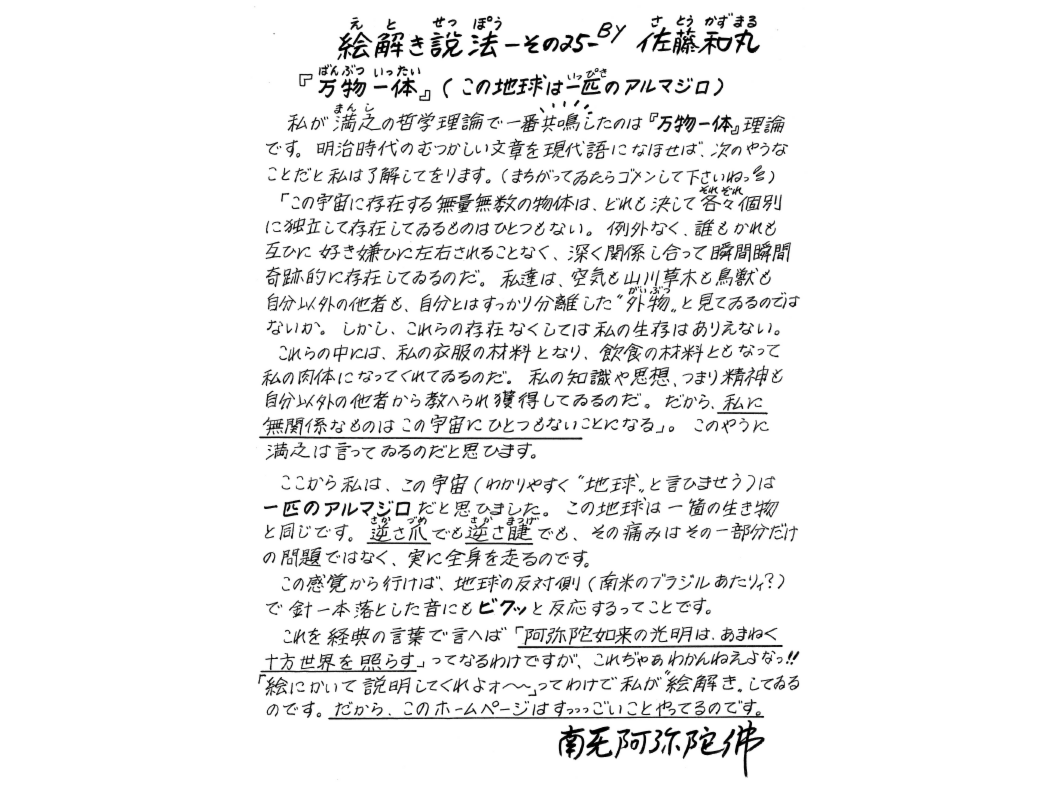 絵解き説法－その25－BY 佐藤和丸
『万物一体』(この地球は一匹のアルマジロ)
私が満之の哲学理論で一番共鳴したのは『万物一体』理論
です。明治時代のむつかしい文章を現代語になほせば、次のやうな
ことだと私は了解してをります。(まちがってゐたらゴメンして下さいねっ)
「この宇宙に存在する無量無数の物体は、どれも決して各々個別
に独立して存在してゐるものはひとつもない。例外なく、誰もかれも
互ひに好き嫌ひに左右されることなく、深く関係し合って瞬間瞬間
奇跡的に存在してゐるのだ。私達は、空気も山川草木も鳥獣も
自分以外の他者も、自分とはすっかり分離した“外物„と見てゐるのでは
ないか。しかし、これらの存在なくしては私の生存はありえない。
これらの中には、私の衣服の材料となり、飲食の材料ともなって
私の肉体になってくれてゐるのだ。私の知識や思想、つまり精神も
自分以外の他者から教へられ獲得してゐるのだ。だから、私に
無関係なものはこの宇宙にひとつもないことになる」。このやうに
満之は言ってゐるのだと思ひます。
ここから私は、この宇宙(わかりやすく“地球„と言ひませう)は
一匹のアルマジロだと思ひました。この地球は一箇の生き物
と同じです。逆さ爪でも逆さ睫でも、その痛みはその一部分だけ
の問題ではなく、実に全身を走るのです。
この感覚から行けば、地球の反対側(南米のブラジルあたりィ?)
で針一本落とした音にもビクッと反応するってことです。
これを経典の言葉で言へば「阿弥陀如来の光明は、あまねく
十方世界を照らす」ってなるわけですが、これぢゃぁわかんねえよなっ!!
「絵にかいて説明してくれよォ〜〜」ってわけで私が“絵解き„してゐる
のです。だから、このホームページはすっっっごいことやってるのです。
南无阿弥陀佛